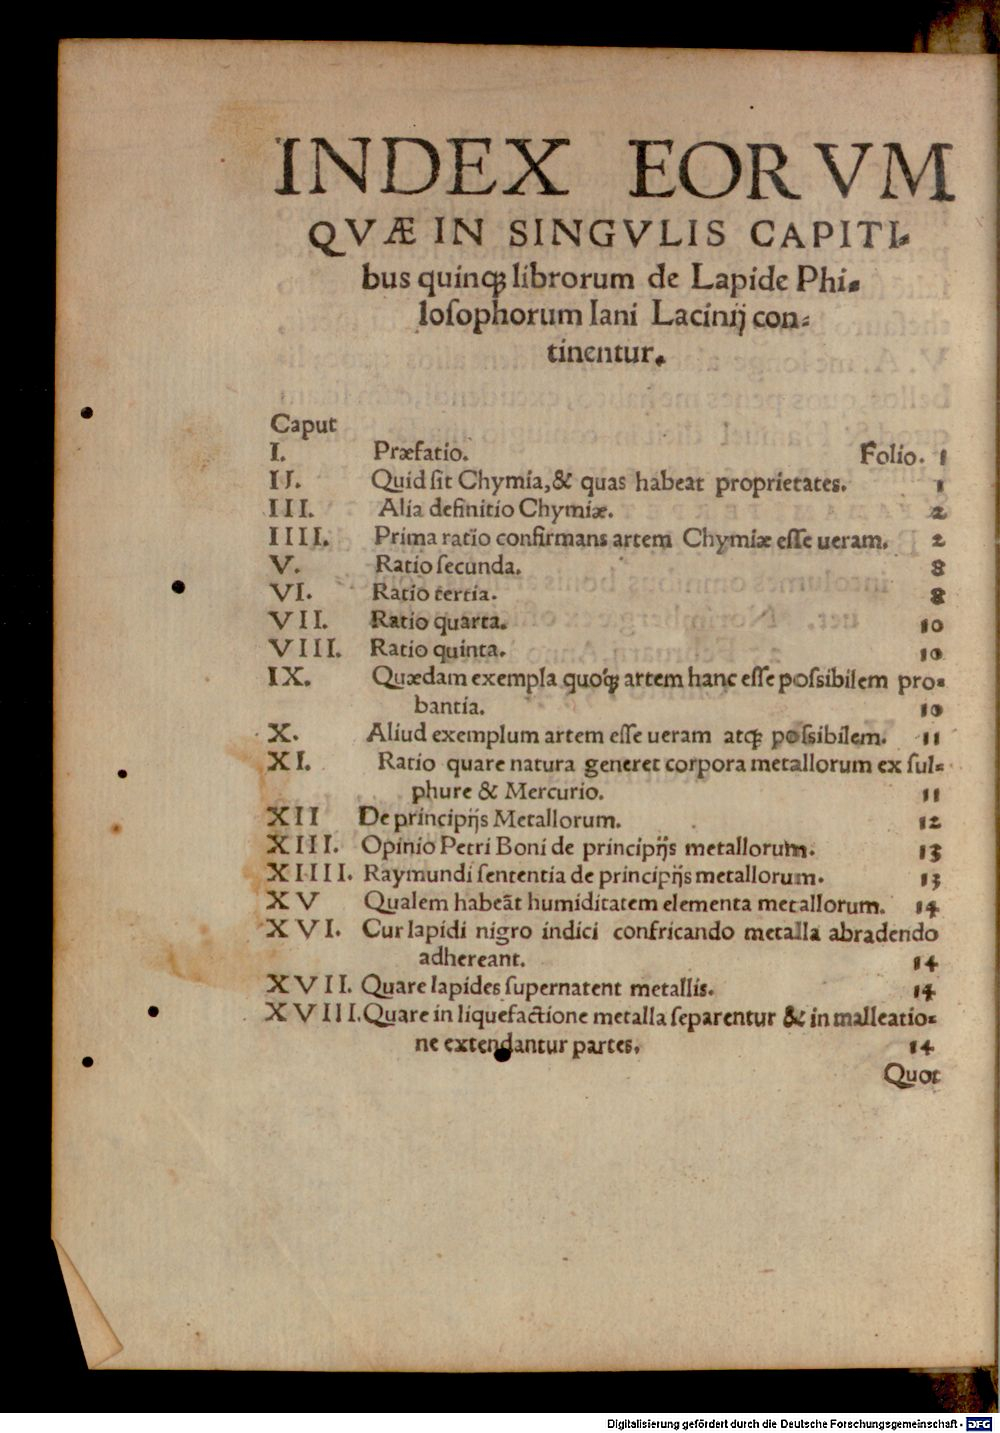 INDEX EORVM
QVÆ IN SINGVLIS CAPITI-
bus quinqꝫ librorum de Lapide Phi-
loſophorum Iani Lacinij con-
tinentur.
Caput
I. Præfatio. Folio. 1
II. Quid ſit Chymia, & quas habeat proprietates. 1
III. Alia definitio Chymiæ. 2
IIII. Prima ratio confirmans artem Chymiæ eſſe ueram. 2
V. Ratio ſecunda. 8
VI. Ratio tertia. 8
VII. Ratio quarta. 10
VIII. Ratio quinta. 10
IX. Quædam exempla quoqꝫ artem hanc eſſe poſsibilem pro-
bantia. 10
X. Aliud exemplum artem eſſe ueram atqꝫ poſsibilem. 11
XI. Ratio quare natura generet corpora metallorum ex ſul-
phure & Mercurio. 11
XII De principijs Metallorum. 12
XIII. Opinio Petri Boni de principijs metallorum. 13
XIIII. Raymundi ſententia de principijs metallorum. 13
XV Qualem habeāt humiditatem elementa metallorum. 14
XVI. Cur lapidi nigro indici confricando metalla abradendo
adhereant. 14
XVII. Quare lapides ſupernatent metallis. 14
XVIII. Quare in liquefactione metalla ſeparentur & in malleatio-
ne extendantur partes. 14
Quot
Digitalisierung gefördert durch die Deutsche Forschungsgemeinschaft - DFG